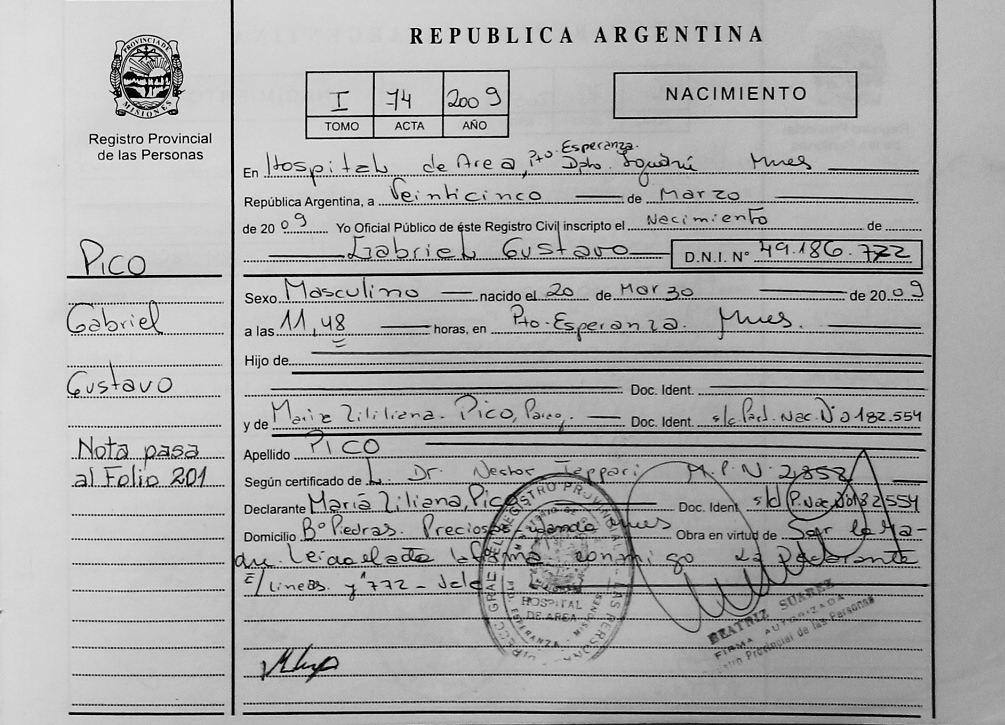 REPUBLICA ARGENTINA
PROVINCIA DE MISIONES
Registro Provincial
de las Personas
I 74 2009
TOMO ACTA AÑO
NACIMIENTO
En Hospital de Area, Pto. Esperanza. Dpto. Iguazú Mnes
República Argentina, a Veinticinco de Marzo
de 2009 Yo Oficial Público de éste Registro Civil inscripto el Nacimiento de
Gabriel Gustavo D.N.I. N° 49.186.772
PICO
Gabriel
Gustavo
Nota pasa
al Folio 201
Sexo Masculino nacido el 20 de Marzo de 2009
a las 11,48 horas, en Pto. Esperanza. Mnes.
Hijo de
Doc. Ident.
y de Maria Liliana. Pico, Doc. Ident. s/c Nac. N° 0182.554
Apellido PICO
Según certificado de L. Dr. Nestor M.P.N. 2852
Declarante María Liliana, Pico Doc. Ident s/d P. Nac. N° 0182554
Domicilio B° Piedras. Preciosas - Wanda Mnes Obra en virtud de Ser la Ma-
dre. Leida el acta la firma conmigo La Declarante
E/lineas. y "772 - Vale
DIRECC. GRAL. DEL REGISTRO PROVINCIAL DE LAS PERSONAS
HOSPITAL
DE AREA
ESPERANZA - MISIONES
BEATRIZ SUAREZ
FIRMA AUTORIZADA
Registro Provincial de las Personas